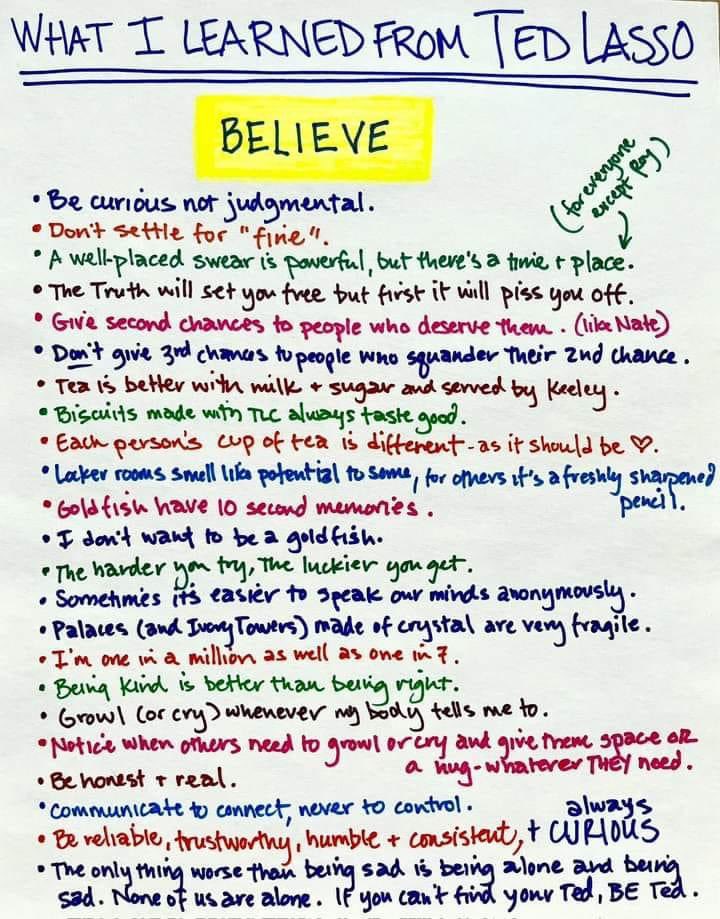 WHAT I LEARNED FROM TED LASSO
BELIEVE
(for everyone
except Roy)
• Be curious not judgmental.
• Don't settle for "fine".
• A well-placed swear is powerful, but there's a time + place.
• The Truth will set you free but first it will piss you off.
• Give second chances to people who deserve them. (like Nate)
• Don't give 3rd chances to people who squander their 2nd chance.
• Tea is better with milk + sugar and served by Keeley.
• Biscuits made with TLC always taste good.
• Each person's cup of tea is different - as it should be ♡.
• Locker rooms smell like potential to some, for others it's a freshly sharpened
pencil.
• Goldfish have 10 second memories.
• I don't want to be a goldfish.
• The harder you try, the luckier you get.
• Sometimes it's easier to speak our minds anonymously.
• Palaces (and Ivory Towers) made of crystal are very fragile.
• I'm one in a million as well as one in 7.
• Being kind is better than being right.
• Growl (or cry) whenever my body tells me to.
• Notice when others need to growl or cry and give them space OR
a hug - whatever THEY need.
• Be honest + real.
• Communicate to connect, never to control.
• Be reliable, trustworthy, humble + consistent, + always CURIOUS
• The only thing worse than being sad is being alone and being
sad. None of us are alone. If you can't find your Ted, BE Ted.